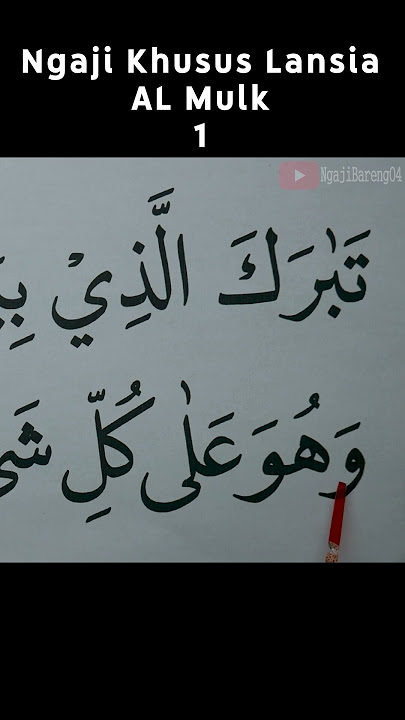 Ngaji Khusus Lansia
AL Mulk
1
NgajiBareng04
تَبٰرَكَ الَّذِيْ
وَهُوَ عَلٰى كُلِّ